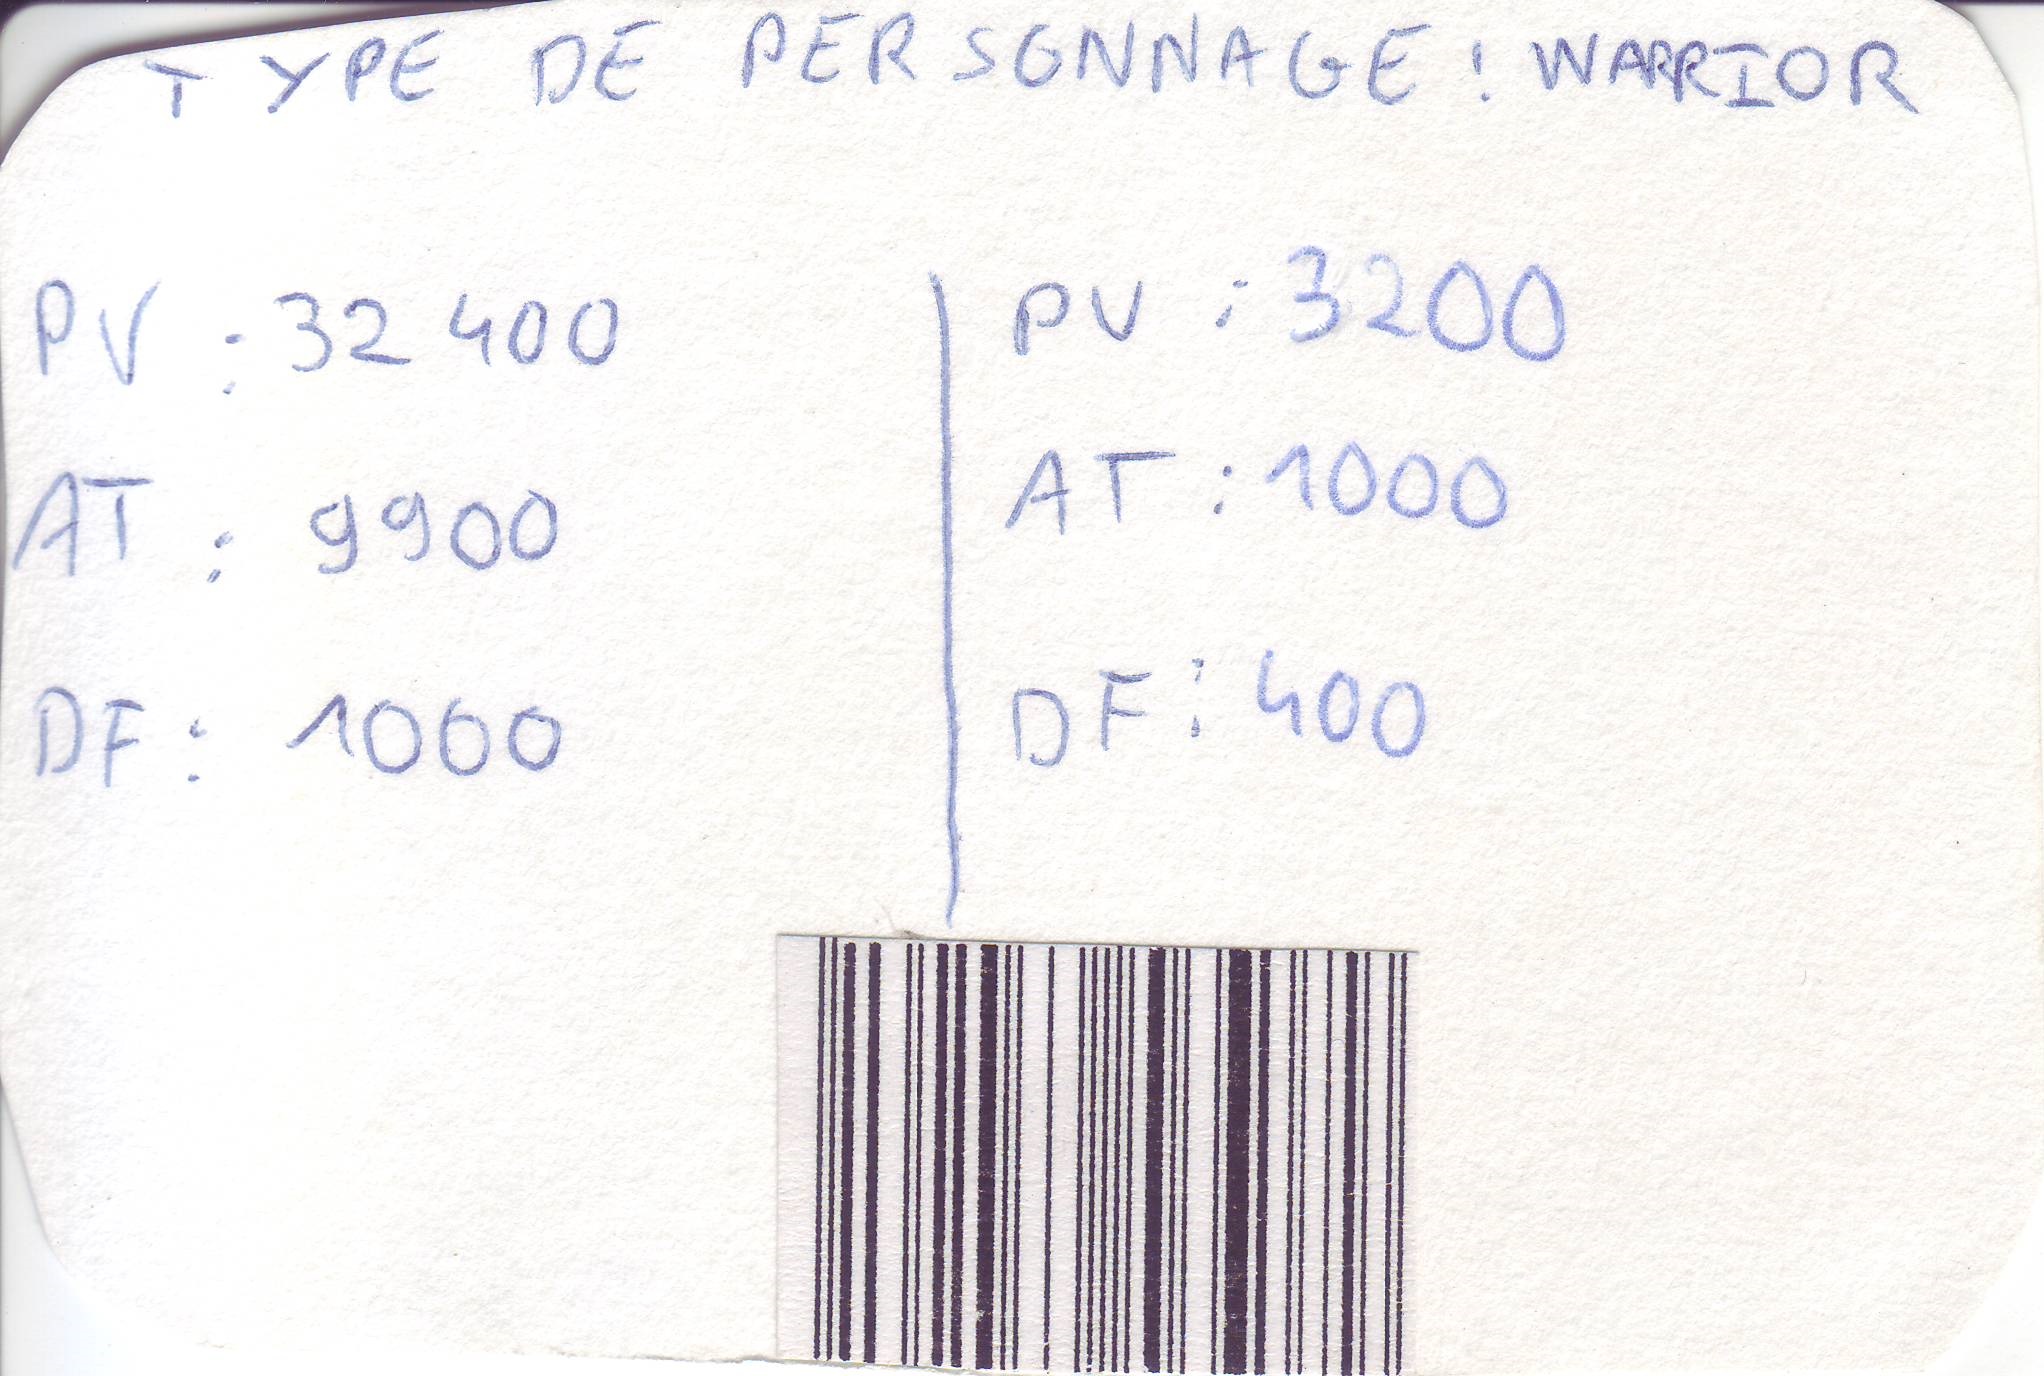 TYPE DE PERSONNAGE : WARRIOR
PV : 32 400
AT : 9900
DF : 1000
PV : 3200
AT : 1000
DF : 400